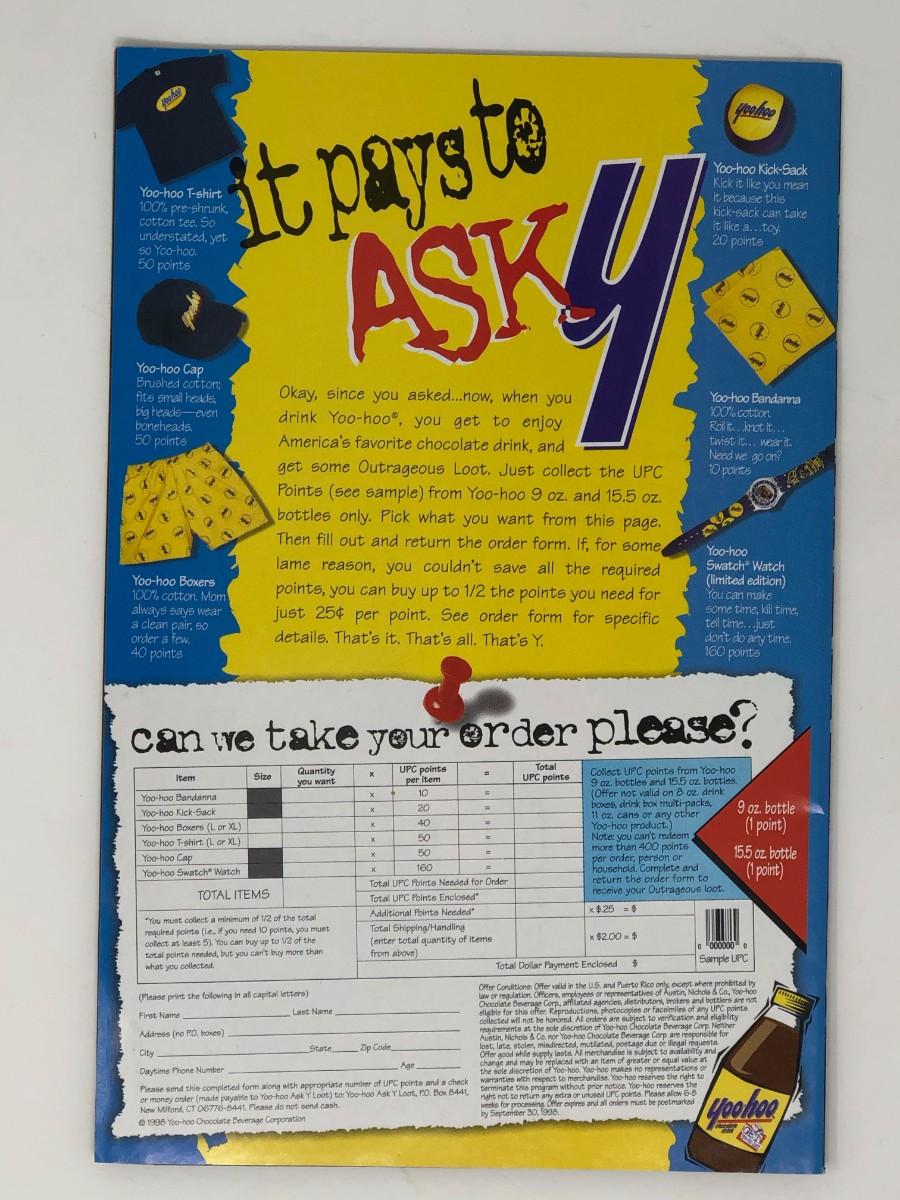 it pays to
ASK Y
yoohoo
Yoo-hoo T-shirt
100% pre-shrunk,
cotton tee. So
understated, yet
so Yoo-hoo.
50 points
Yoo-hoo Cap
Brushed cotton;
fits small heads,
big heads—even
boneheads.
50 points
Yoo-hoo Boxers
100% cotton. Mom
always says wear
a clean pair, so
order a few.
40 points
Okay, since you asked...now, when you
drink Yoo-hoo®, you get to enjoy
America's favorite chocolate drink, and
get some Outrageous Loot. Just collect the UPC
Points (see sample) from Yoo-hoo 9 oz. and 15.5 oz.
bottles only. Pick what you want from this page.
Then fill out and return the order form. If, for some
lame reason, you couldn't save all the required
points, you can buy up to 1/2 the points you need for
just 25¢ per point. See order form for specific
details. That's it. That's all. That's Y.
yoohoo
Yoo-hoo Kick-Sack
Kick it like you mean
it because this
kick-sack can take
it like a...toy.
20 points
Yoo-hoo Bandanna
100% cotton.
Roll it... knot it...
twist it... wear it.
Need we go on?
10 points
Yoo-hoo
Swatch® Watch
(limited edition)
You can make
some time, kill time,
tell time...just
don't do any time.
160 points
can we take your order please?
Item Size Quantity you want x UPC points per item = Total UPC points
Yoo-hoo Bandanna x 10 =
Yoo-hoo Kick-Sack x 20 =
Yoo-hoo Boxers (L or XL) x 40 =
Yoo-hoo T-shirt (L or XL) x 50 =
Yoo-hoo Cap x 50 =
Yoo-hoo Swatch® Watch x 160 =
TOTAL ITEMS
Total UPC Points Needed for Order
Total UPC Points Enclosed*
Additional Points Needed* x $.25 = $
Total Shipping/Handling
(enter total quantity of items
from above) x $2.00 = $
Total Dollar Payment Enclosed $
*You must collect a minimum of 1/2 of the total
required points (i.e., if you need 10 points, you must
collect at least 5). You can buy up to 1/2 of the
total points needed, but you can't buy more than
what you collected.
Collect UPC points from Yoo-hoo
9 oz. bottles and 15.5 oz. bottles.
(Offer not valid on 8 oz. drink
boxes, drink box multi-packs,
11 oz. cans or any other
Yoo-hoo product.)
Note: you can't redeem
more than 400 points
per order, person or
household. Complete and
return the order form to
receive your Outrageous loot.
9 oz. bottle
(1 point)
15.5 oz. bottle
(1 point)
0 000000 0
Sample UPC
(Please print the following in all capital letters)
First Name Last Name
Address (no P.O. boxes)
City State Zip Code
Daytime Phone Number Age
Please send this completed form along with appropriate number of UPC points and a check
or money order (made payable to Yoo-hoo Ask Y Loot) to: Yoo-hoo Ask Y Loot, P.O. Box 8441,
New Milford, CT 06776-8441. Please do not send cash.
© 1998 Yoo-hoo Chocolate Beverage Corporation
Offer Conditions: Offer valid in the U.S. and Puerto Rico only, except where prohibited by
law or regulation. Officers, employees or representatives of Austin, Nichols & Co., Yoo-hoo
Chocolate Beverage Corp., affiliated agencies, distributors, brokers and bottlers are not
eligible for this offer. Reproductions, photocopies or facsimiles of any UPC points
collected will not be honored. All orders are subject to verification and eligibility
requirements at the sole discretion of Yoo-hoo Chocolate Beverage Corp. Neither
Austin, Nichols & Co. nor Yoo-hoo Chocolate Beverage Corp. are responsible for
lost, late, stolen, misdirected, mutilated, postage due or illegal requests.
Offer good while supply lasts. All merchandise is subject to availability and
change and may be replaced with an item of greater or equal value at
the sole discretion of Yoo-hoo. Yoo-hoo makes no representations or
warranties with respect to merchandise. Yoo-hoo reserves the right to
terminate this program without prior notice. Yoo-hoo reserves the
right not to return any extra or unused UPC points. Please allow 6-8
weeks for processing. Offer expires and all orders must be postmarked
by September 30, 1998.
yoohoo
chocolate
drink